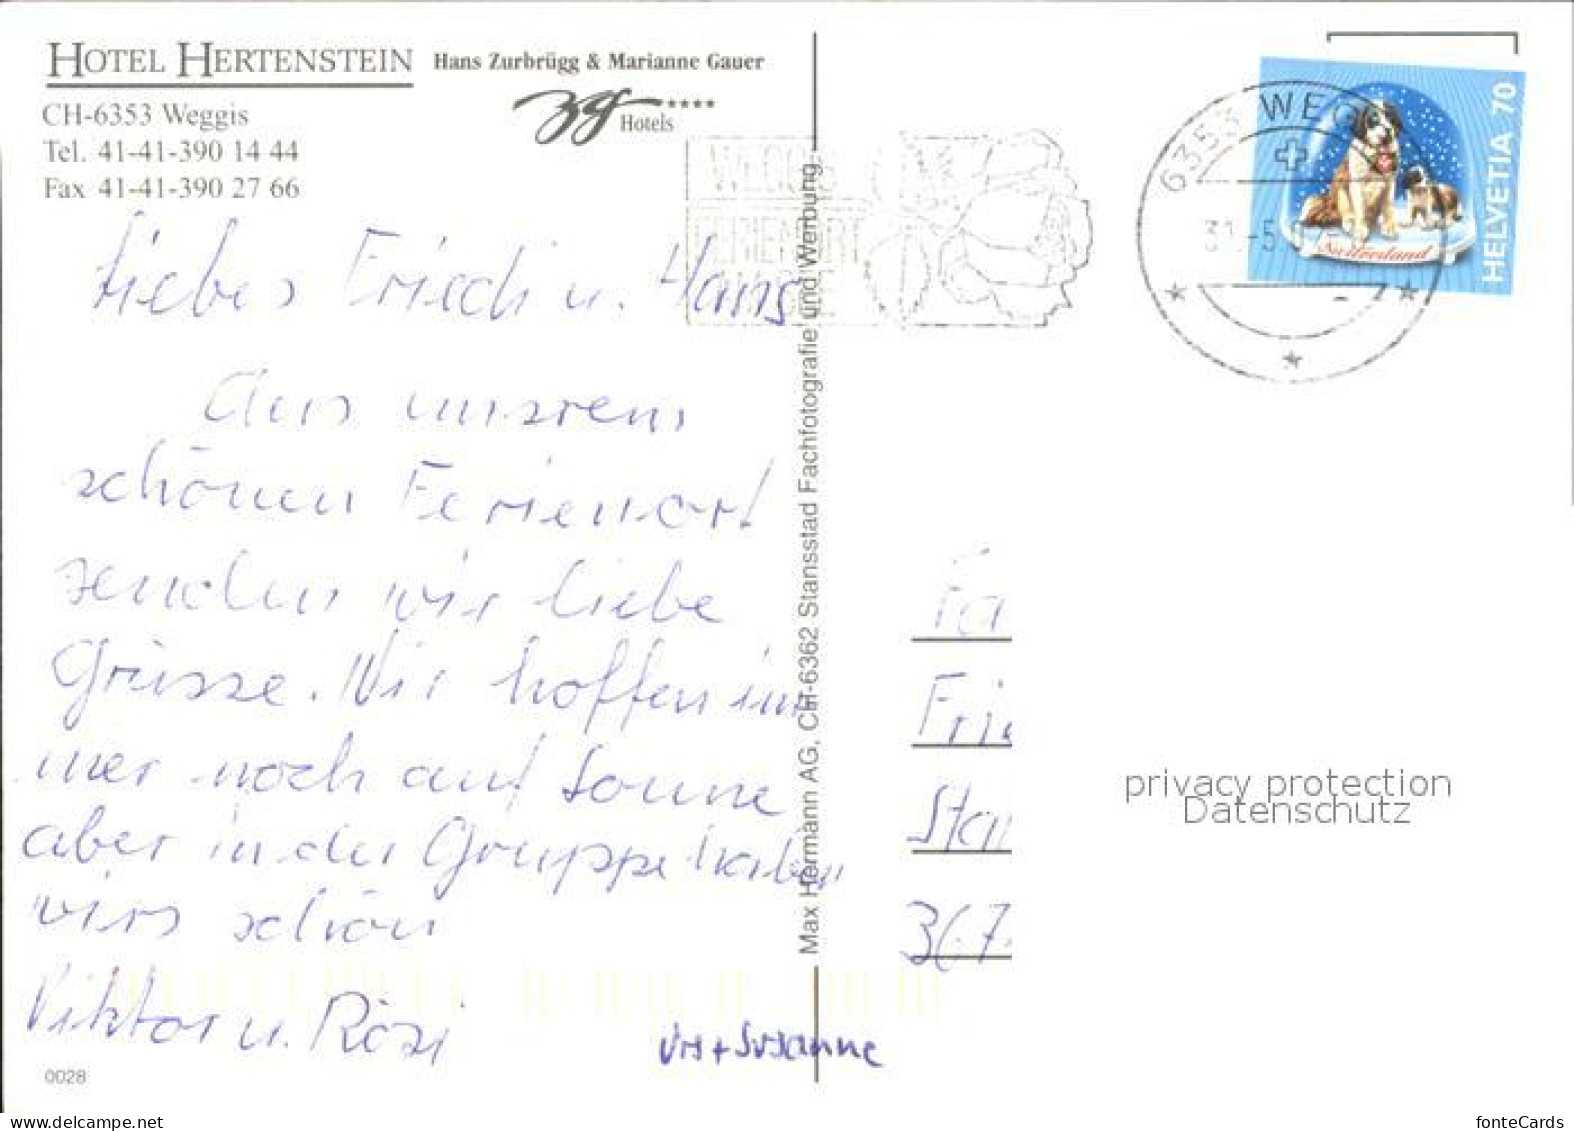 HOTEL HERTENSTEIN Hans Zurbrügg & Marianne Gauer
CH-6353 Weggis
Tel. 41-41-390 14 44
Fax 41-41-390 27 66
Hotels
Liebes Friedi u. Hans
Aus unsrem
schönen Ferienort
senden wir liebe
Grüsse. Wir hoffen im
mer noch auf Sonne
aber in der Gruppe haben
wirs schön
Viktor u. Rösi
Urs + Susanne
0028
Max Hermann AG, CH-6362 Stansstad Fachfotografie und Werbung
6353 WEG
31.-5.
HELVETIA 70
Switzerland
Fa
Fri
Sta
367
privacy protection
Datenschutz
the-best-of-philately.com
fonteCards